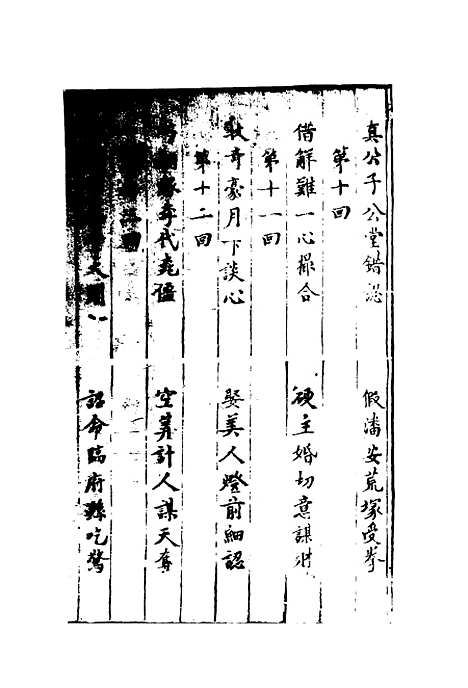 真公子公堂錯認 假潘安荒塚受拳
第十回
借解難一心撮合 硬主婚切意謀財
第十一回
耿奇豪月下談心 娶美人燈前細認
第十二回
年代尭僵 空算計人謀天奪
回
天 詔命臨府縣吃驚